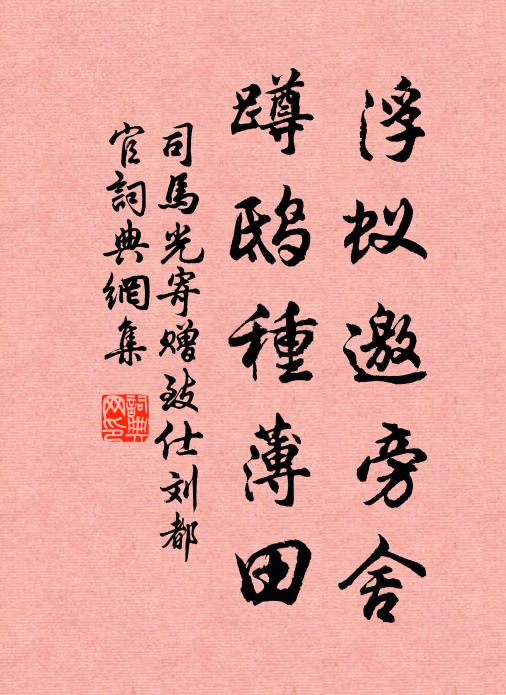 浮蚁邀旁舍
蹲鸱種薄田
司馬光寄赠致仕刘都
官詞典網集
詞典網印